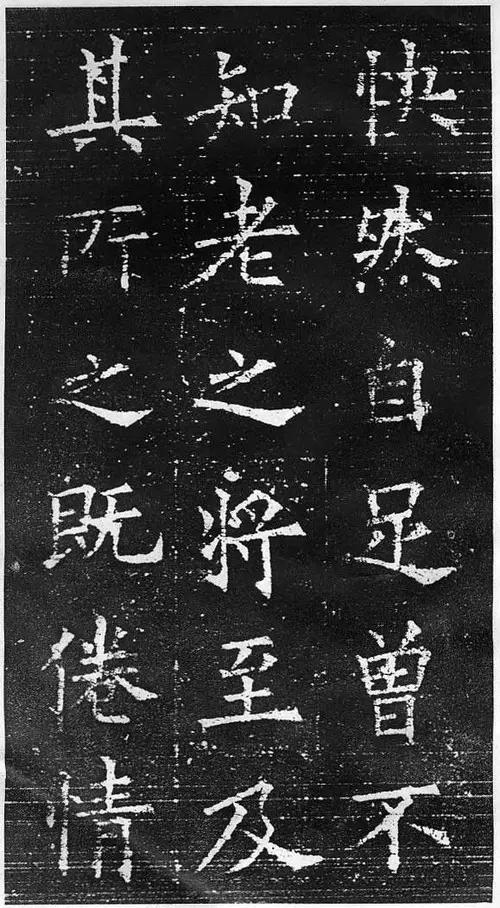 快然自足曽不
知老之将至及
其所之既倦情